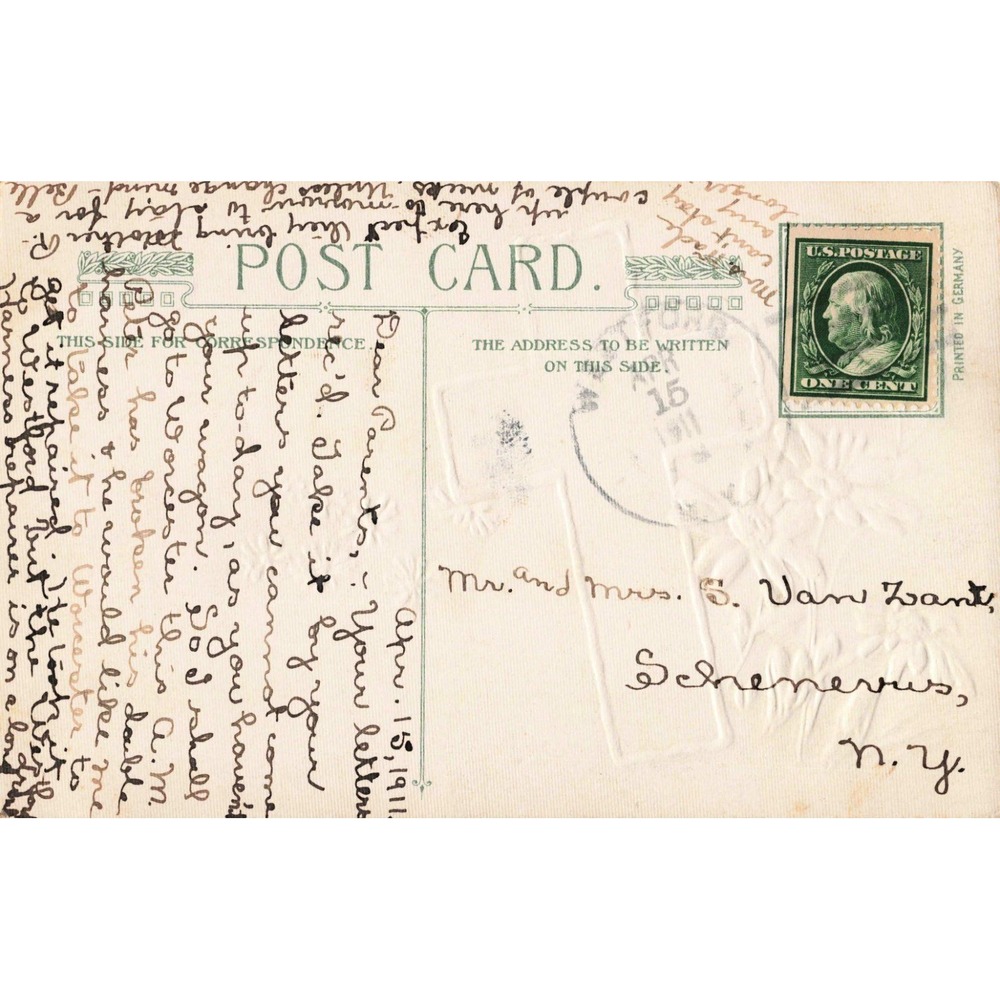 POST CARD.
THIS SIDE FOR CORRESPONDENCE.
THE ADDRESS TO BE WRITTEN
ON THIS SIDE.
U.S. POSTAGE
ONE CENT
PRINTED IN GERMANY
APR
15
1911
Mr. and Mrs. S. Van Zant,
Schenevus,
N. Y.
Apr. 15, 1911
Dear Parents,: Your letter
rc'd. Take it by your
letters you cannot come
up to-day, as you haven't
your wagon. So I shall
go to Worcester this A.M.
Peter has broken his double
harness & he would like me
to take it to Worcester to
get it repaired but the
Westford
Harness repairer is on a long
Expect they bring Mother R.
up here to-morrow to stay for a
couple of weeks. Unless change mind - Belle
Ma
can't stay
any
longer